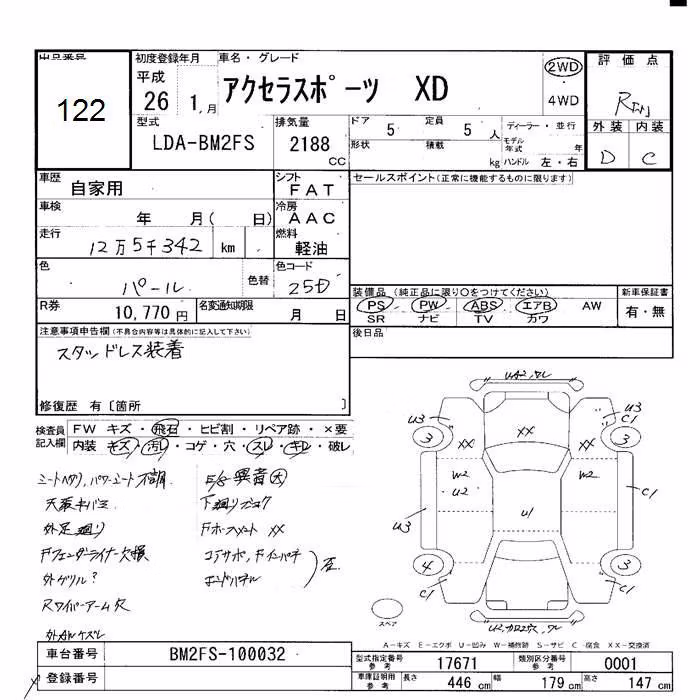 出品番号
122
初度登録年月
平成
26 1 月
車名・グレード
アクセラスポーツ XD
2WD
4WD
評価点
外装 内装
D C
型式
LDA-BM2FS
排気量
2188
CC
ドア
5
定員
5 人
形状
積載
kg
ディーラー・並行
モデル年式 年
ハンドル 左・右
車歴
自家用
シフト
FAT
セールスポイント(正常に機能するものに限ります)
車検
年 月( 日)
冷房
AAC
走行
12万5千342 km
燃料
軽油
色
パール
色替
色コード
25D
R券
10,770 円
名変通知期限
月 日
装備品(純正品に限り○をつけてください)
PS PW ABS エアB AW
SR ナビ TV カワ
新車保証書
有・無
注意事項申告欄(不具合内容等は具体的に記入して下さい)
スタッドレス装着
後日品
修復歴 有〔箇所 〕
検査員記入欄
FW キズ・飛石・ヒビ割・リペア跡・×要
内装 キズ・汚レ・コゲ・穴・スレ・キレ・破レ
シートヘタリ,パワーシート不調
E/G異音大
天張キバミ
外足廻り
Fフェンダーライナー欠損
コアサポ,Fインパネ
外グリル?
エンドパネル
Rワイパーアーム欠
UA2,ワレ
U3
3
XX
XX
XX
U3
3
W2
U2
W2
C1
U3
U1
4
C1
3
C1
スペア
A-キズ E-エクボ U-凹み W-補修跡 S-サビ C-腐食 XX-交換済
車台番号
BM2FS-100032
登録番号
型式指定番号
参考
17671
類別区分番号
参考
0001
車庫証明用
参考
長さ
446 cm
幅
179 cm
高さ
147 cm